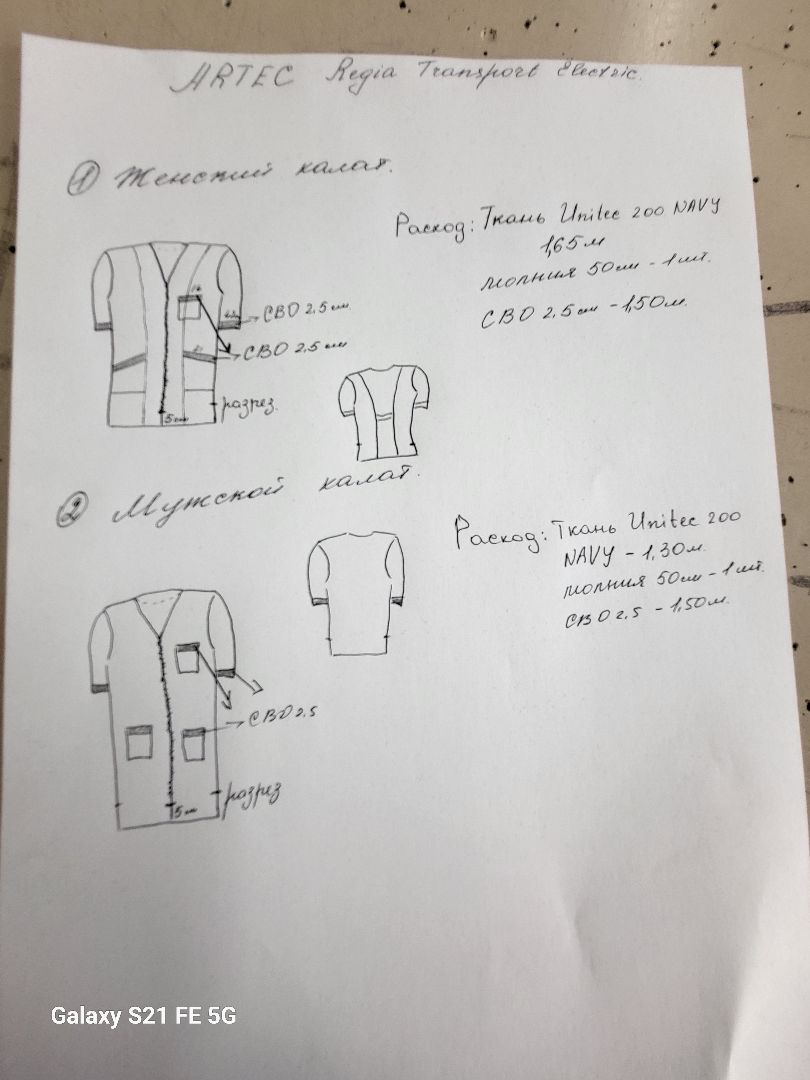 ARTEC Regia Transport Electric.
① Женский халат.
Расход: Ткань Unitec 200 NAVY
1,65 м
молния 50 см - 1 шт.
СВО 2,5 см - 1,50 м.
СВО 2,5 см
СВО 2,5 см
разрез.
5 см
② Мужской халат.
Расход: Ткань Unitec 200
NAVY - 1,30 м.
молния 50 см - 1 шт.
СВО 2,5 - 1,50 м.
СВО 2,5
разрез
5 см
Galaxy S21 FE 5G